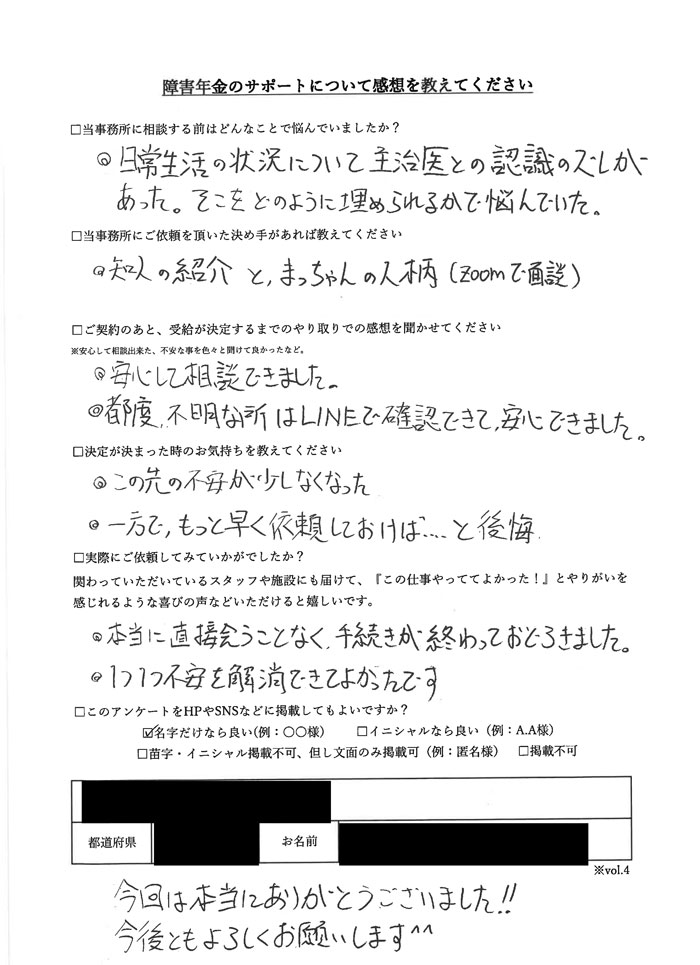 障害年金のサポートについて感想を教えてください
□当事務所に相談する前はどんなことで悩んでいましたか？
◎日常生活の状況について主治医との認識のズレが
あった。そこをどのように埋められるかで悩んでいた。
□当事務所にご依頼を頂いた決め手があれば教えてください
◎知人の紹介と、まっちゃんの人柄(Zoomで面談)
□ご契約のあと、受給が決定するまでのやり取りでの感想を聞かせてください
※安心して相談出来た、不安な事を色々と聞けて良かったなど。
◎安心して相談できました。
◎都度、不明な所はLINEで確認できて、安心できました。
□決定が決まった時のお気持ちを教えてください
◎この先の不安が少しなくなった
◎一方で、もっと早く依頼しておけば....と後悔
□実際にご依頼してみていかがでしたか？
関わっていただいているスタッフや施設にも届けて、『この仕事やっててよかった！』とやりがいを
感じれるような喜びの声などいただけると嬉しいです。
◎本当に直接会うことなく、手続きが終わっておどろきました。
◎1つ1つ不安を解消できてよかったです
□このアンケートをHPやSNSなどに掲載してもよいですか？
☑名字だけなら良い(例：〇〇様) □イニシャルなら良い（例：A.A様）
□苗字・イニシャル掲載不可、但し文面のみ掲載可（例：匿名様） □掲載不可
都道府県 お名前
※vol.4
今回は本当にありがとうございました!!
今後ともよろしくお願いします^^